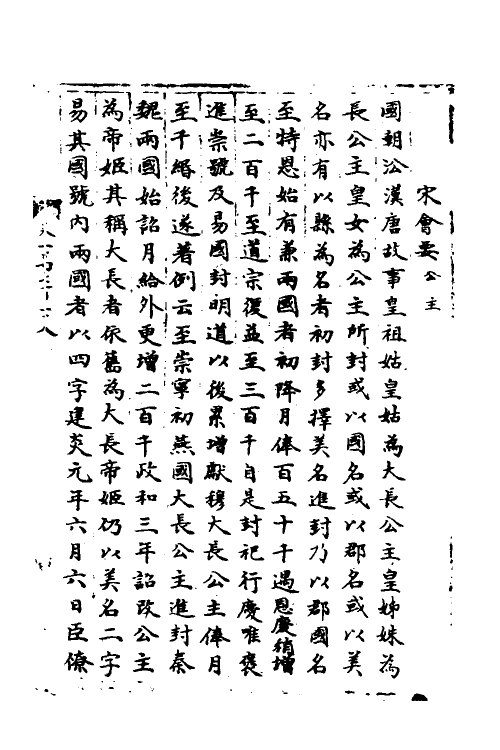 宋會要公主
國朝沿漢唐故事皇祖姑皇姑為大長公主皇姊妹為
長公主皇女為公主所封或以國名或以郡名或以美
名亦有以縣為名者初封多擇美名進封乃以郡國名
至特恩始有兼兩國者初降月俸百五十千遇恩慶稍增
至二百千至道宗復益至三百千自是封祀行慶唯褒
進崇號及易國封明道以後累增獻穆大長公主俸月
至千緡後遂著例云至崇寧初燕國大長公主進封秦
魏兩國始詔月給外更增二百千政和三年詔改公主
為帝姬其稱大長者依舊為大長帝姬仍以美名二字
易其國號內兩國者以四字建炎元年六月六日臣僚